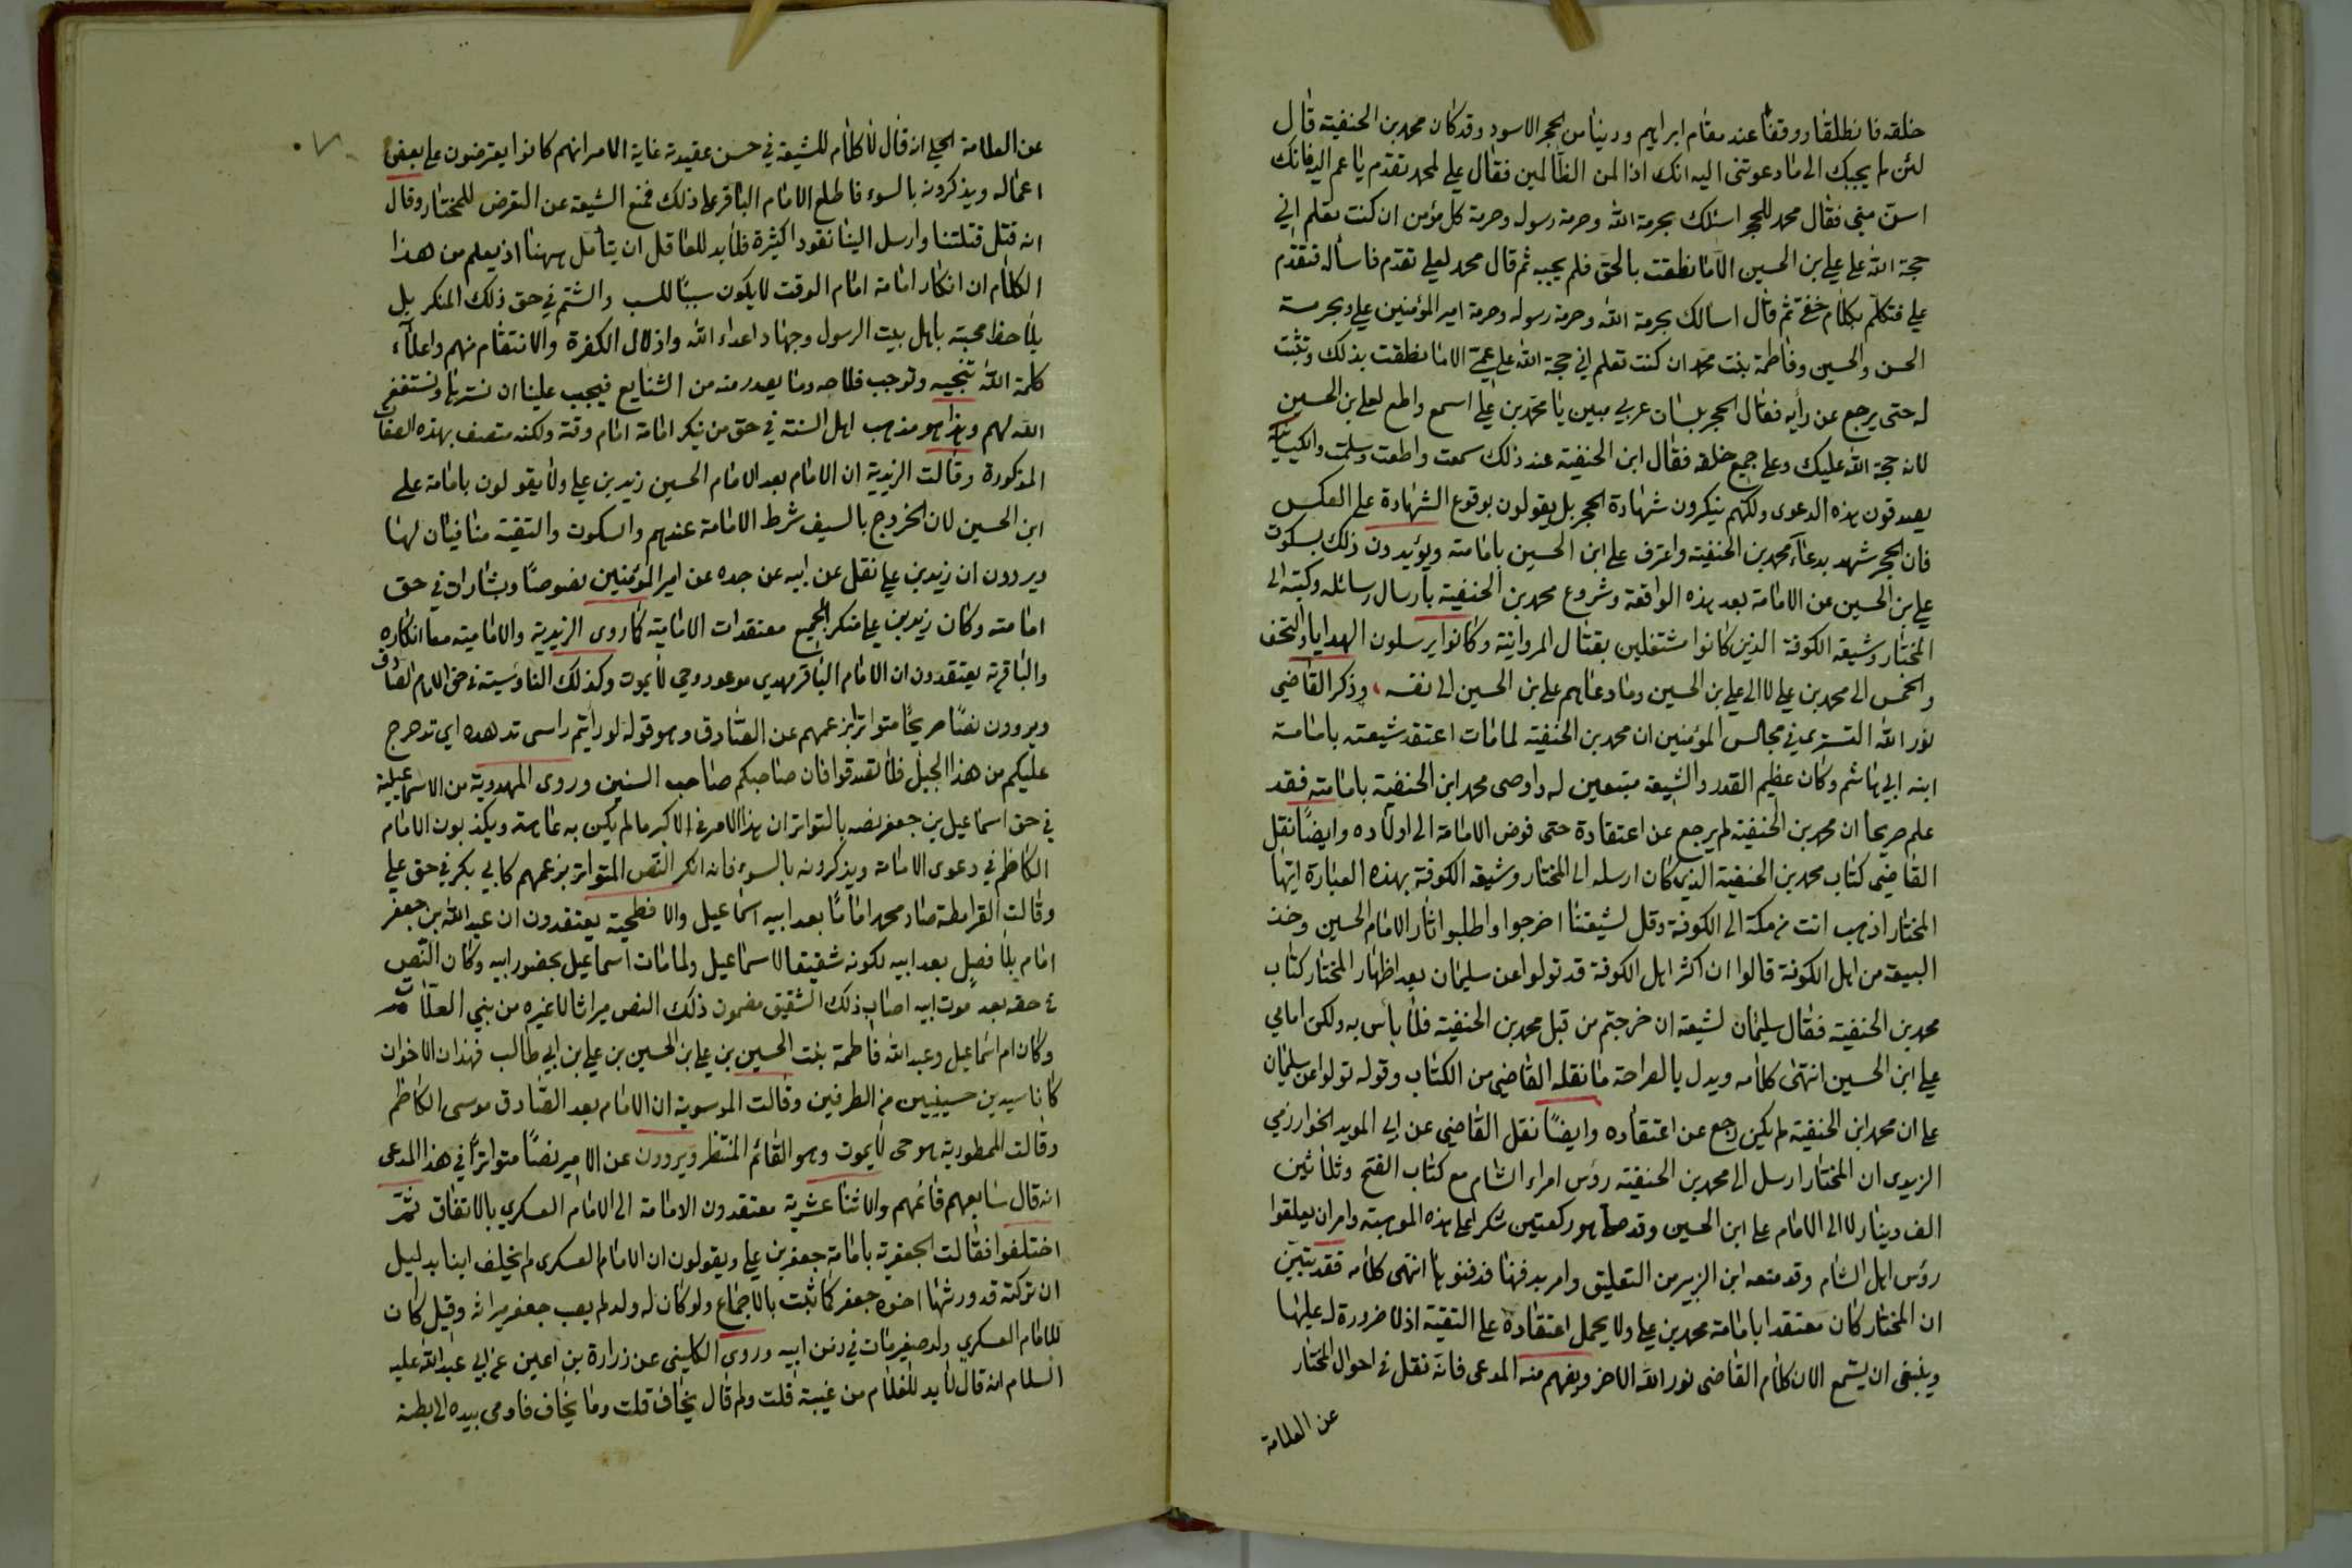 خلقه فانطلقا ووقفا عند مقام ابراهيم ودنيا من الحجر الاسود وقد كان محمد بن الحنفية قال
لئن لم يجبك الى ما دعوتنى اليه انك اذا لمن الظالمين فقال على لمحمد تقدم يا عم اليه فانك
اسن منى فقال محمد للحجر اسئلك بحرمة الله وحرمة رسوله وحرمة كل مؤمن ان كنت تعلم انى
حجة الله على على بن الحسين الا ما نطقت بالحق فلم يجبه ثم قال محمد لعلى تقدم فاسأله فتقدم
على فتكلم بكلام خفى ثم قال اسالك بحرمة الله وحرمة رسوله وحرمة امير المؤمنين على وبحرمة
الحسن والحسين وفاطمة بنت محمد ان كنت تعلم انى حجة الله على عمى الا ما نطقت بذلك وتثبت
له حتى يرجع عن رأيه فقال الحجر بلسان عربي مبين يا محمد بن على اسمع واطع لعلى بن الحسين
لانه حجة الله عليك وعلى جميع خلقه فقال ابن الحنفية عند ذلك سمعت واطعت وسلمت والكيسانية
يصدقون هذه الدعوى ولكنهم ينكرون شهادة الحجر بل يقولون بوقوع الشهادة على العكس
فان الحجر شهد بدعاء محمد بن الحنفية واعترف على ابن الحسين بامامته ويؤيدون ذلك بسكوت
على بن الحسين عن الامامة بعد هذه الواقعة وشروع محمد بن الحنفية بارسال رسائله وكتبه الى
المختار وشيعة الكوفة الذين كانوا مشتغلين بقتال المروانية وكانوا يرسلون الهدايا والتحف
والخمس الى محمد بن على لا الى على بن الحسين وما دعاهم على بن الحسين الى نفسه، وذكر القاضي
نور الله التسترى في مجالس المؤمنين ان محمد بن الحنفية لما مات اعتقد شيعته بامامة
ابنه ابي هاشم وكان عظيم القدر والشيعة متبعين له واوصى محمد ابن الحنفية بامامته فقد
علم صريحا ان محمد بن الحنفية لم يرجع عن اعتقاده حتى فوض الامامة الى اولاده وايضًا نقل
القاضي كتاب محمد بن الحنفية الذي كان ارسله الى المختار وشيعة الكوفة بهذه العبارة ايها
المختار اذهب انت من مكة الى الكوفة وقل لشيعتنا اخرجوا واطلبوا ثار الامام الحسين وخذ
البيعة من اهل الكوفة قالوا ان اكثر اهل الكوفة قد تولوا عن سليمان بعد اظهار المختار كتاب
محمد بن الحنفية فقال سليمان لشيعة ان خرجتم من قبل محمد بن الحنفية فلا بأس به ولكن امامي
على ابن الحسين انتهى كلامه ويدل بالصراحة ما نقله القاضي من الكتاب وقوله تولوا عن سليمان
على ان محمد ابن الحنفية لم يكن راجع عن اعتقاده وايضًا نقل القاضي عن ابي المويد الخوارزمي
الزيدى ان المختار ارسل الى محمد بن الحنفية رؤس امراء الشام مع كتاب الفتح وثلاثين
الف دينار لا الى الامام على ابن الحسين وقد صلى هو ركعتين شكرا على هذه الموهبة وامر ان يعلقوا
رؤس اهل الشام وقد منعه ابن الزبير من التعليق وامر بدفنها فدفنوها انتهى كلامه فقد تبين
ان المختار كان معتقدا بامامة محمد بن على ولا يحمل اعتقاده على التقية اذ لا ضرورة له عليها
وينبغى ان يستمع الان كلام القاضى نور الله الاخر ويفهم منه المدعى فانه نقل فى احوال المختار
عن العلامة
عن العلامة الحلي انه قال لا كلام للشيعة في حسن عقيدته غاية الامر انهم كانوا يعترضون على بعض
اعماله ويذكرونه بالسوء فاطلع الامام الباقر على ذلك فمنع الشيعة عن التعرض للمختار وقال
انه قتل قتلتنا وارسل الينا نقودا كثيرة فلا بد للعاقل ان يتأمل ههنا اذ يعلم من هذا
الكلام ان انكار امامة امام الوقت لا يكون سببًا للسب والشتم في حق ذلك المنكر بل
يلاحظ محبته باهل بيت الرسول وجهاد اعداء الله واذلال الكفرة والانتقام منهم واعلاء
كلمة الله تنجيه وتوجب فلاحه وما يصدر منه من الشنايع فيجب علينا ان نسترها ونستغفر
الله لهم وهذا هو مذهب اهل السنة في حق من ينكر امامة امام وقته ولكنه متصف بهذه الصفات
المذكورة وقالت الزيدية ان الامام بعد الامام الحسين زيد بن على ولا يقولون بامامة على
ابن الحسين لان الخروج بالسيف شرط الامامة عندهم والسكوت والتقية منافيان لها
ويروون ان زيد بن على نقل عن ابيه عن جده عن امير المؤمنين نصوصًا وبشارات في حق
امامته وكان زيد بن على منكر الجميع معتقدات الامامية كما روى الزيدية والامامية معا انكاره
والباقرية يعتقدون ان الامام الباقر مهدي موعود وحي لا يموت وكذلك الناوسية في حق الامام الصادق
ويروون نصًا صريحًا متواترا بزعمهم عن الصادق وهو قوله لو رأيتم راسى تدهده اي تدحرج
عليكم من هذا الجبل فلا تصدقوا فان صاحبكم صاحب السنين وروى المهدوية من الاسماعيلية
في حق اسماعيل بن جعفر نصه بالتواتر ان هذا الامر في الاكبر ما لم يكن به عاهة ويكذبون الامام
الكاظم في دعوى الامامة ويذكرونه بالسوء فانه انكر النص المتواتر بزعمهم كابي بكر في حق علي
وقالت القرامطة صار محمد امامًا بعد ابيه اسماعيل والافطحية يعتقدون ان عبد الله بن جعفر
امام بلا فصل بعد ابيه لكونه شقيقا لاسماعيل ولما مات اسماعيل بحضور ابيه وكان النص
في حقه بعد موت ابيه اصاب ذلك الشقيق مضمون ذلك النص ميراثا لا غيره من بني العلات
وكان ام اسماعيل وعبد الله فاطمة بنت الحسين بن علي بن الحسين بن علي بن ابي طالب فهذان الاخوان
كانا سيدين حسينيين من الطرفين وقالت الموسوية ان الامام بعد الصادق موسى الكاظم
وقالت الممطورية هو حى لا يموت وهو القائم المنتظر ويروون عن الامير نصًا متواترًا في هذا المدعى
انه قال سابعهم قائمهم والاثنا عشرية معتقدون الامامة الى الامام العسكري بالاتفاق ثم
اختلفوا فقالت الجعفرية بامامة جعفر بن على ويقولون ان الامام العسكرى لم يخلف ابنا بدليل
ان تركته قد ورثها اخوه جعفر كما ثبت بالاجماع ولو كان له ولد لم يصب جعفر ميراثه وقيل كان
للامام العسكري ولد صغير مات في زمن ابيه وروى الكلينى عن زرارة بن اعين عن ابي عبد الله عليه
السلام انه قال لا بد للغلام من غيبة قلت ولم قال يخاف قلت وما يخاف فاومى بيده الى بطنه